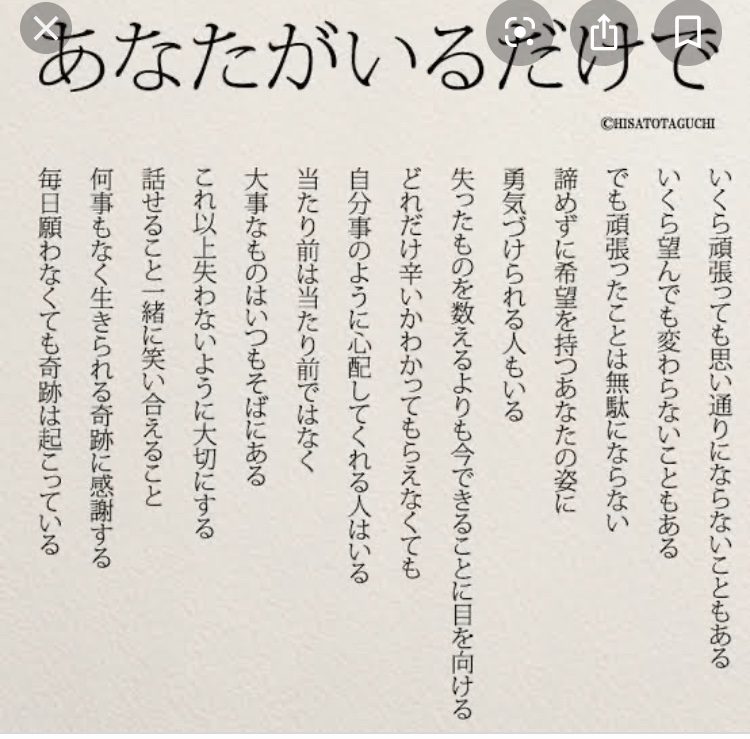 あなたがいるだけで
©HISATOTAGUCHI
いくら頑張っても思い通りにならないこともある
いくら望んでも変わらないこともある
でも頑張ったことは無駄にならない
諦めずに希望を持つあなたの姿に
勇気づけられる人もいる
失ったものを数えるよりも今できることに目を向ける
どれだけ辛いかわかってもらえなくても
自分事のように心配してくれる人はいる
当たり前は当たり前ではなく
大事なものはいつもそばにある
これ以上失わないように大切にする
話せること一緒に笑い合えること
何事もなく生きられる奇跡に感謝する
毎日願わなくても奇跡は起こっている